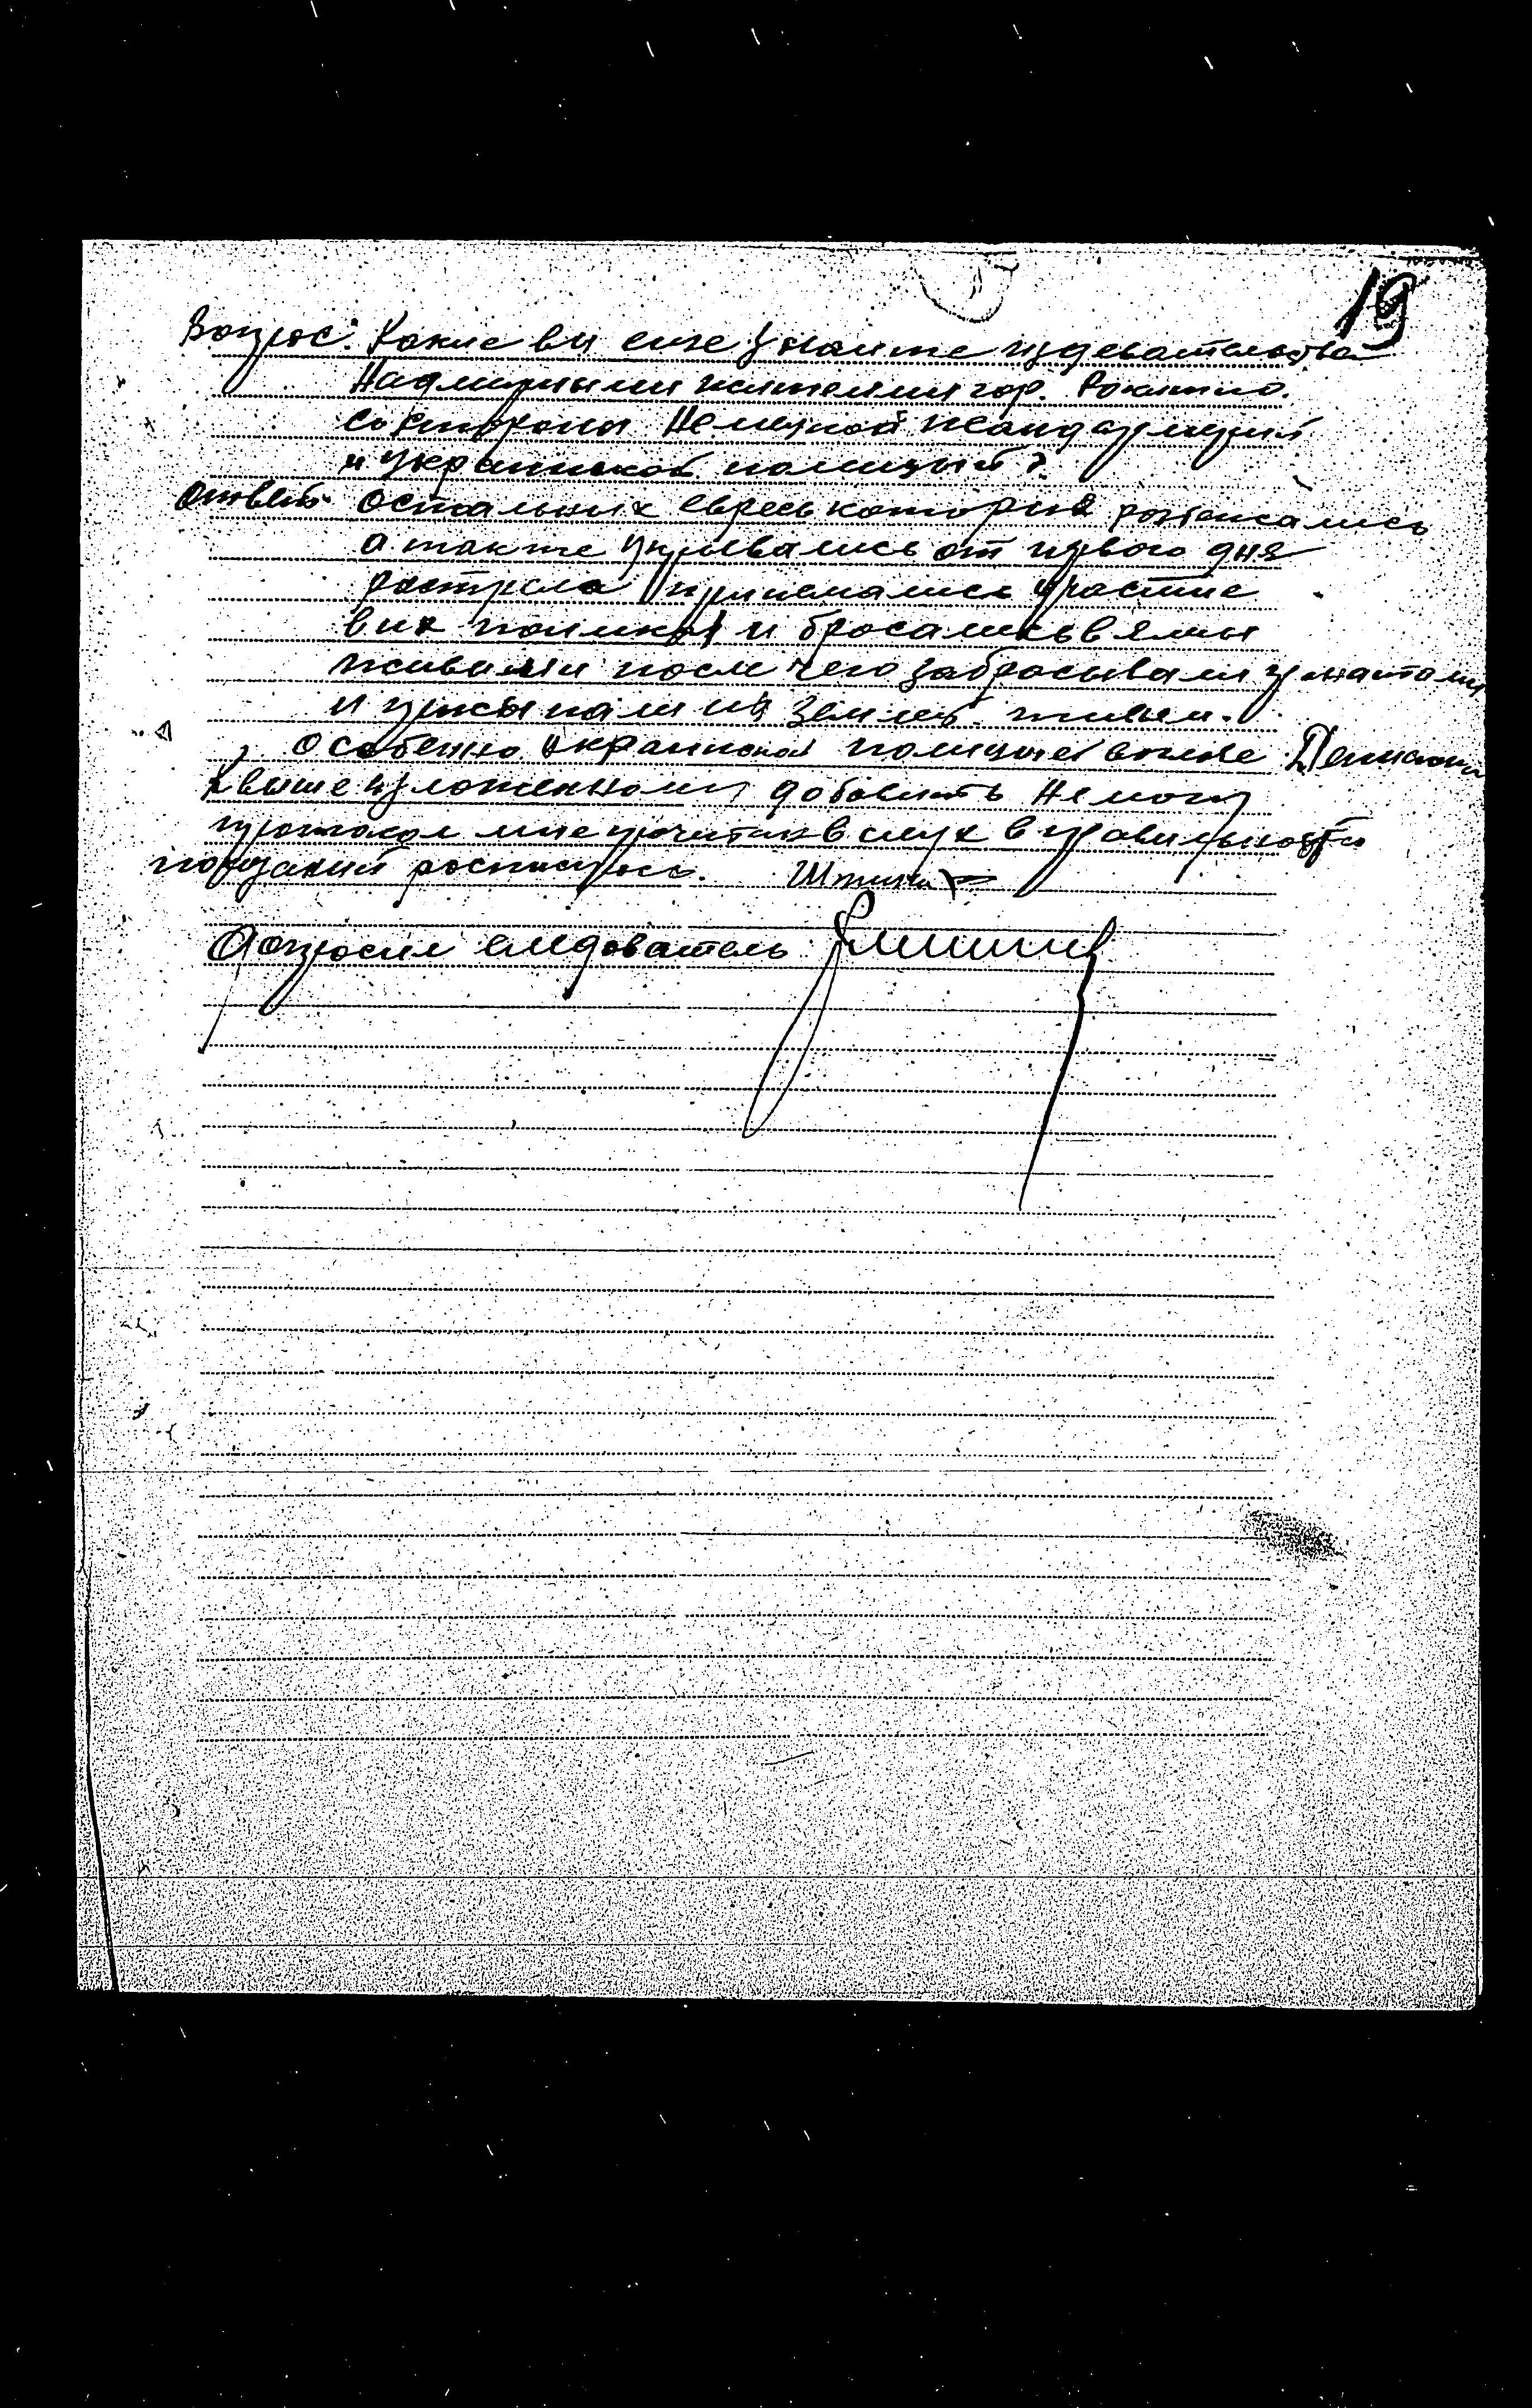 19
Вопрос: Какие вы еще знаите издевательства
Над мирными жителями гор. Рокитно.
со стороны Немецкой жандармерий
и украинской полицый?
Ответ: Остальных евреев которые розбежались
а также укрывались от первого дня
растрела принемались участие
в их поимки и бросались в ямы
живыми после чего забросывали гранатами
и присыпали их землей живьем.
Особенно украинской полицией
К выше изложенному добавить Не могу
протокол мне прочитан в слух в правильности
показаний роспишусь.
Допросил следователь